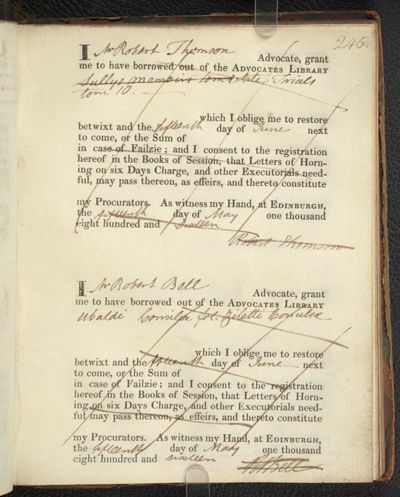 245.
I Mr Robert Thomson Advocate, grant
me to have borrowed out of the ADVOCATES LIBRARY
Sullys memoirs tom State Trials
tom 10
which I oblige me to restore
betwixt and the fifteenth day of June next
to come, or the Sum of
in case of Failzie; and I consent to the registration
hereof in the Books of Session, that Letters of Horn-
ing on six Days Charge, and other Executorials need-
ful, may pass thereon, as effeirs, and thereto constitute
my Procurators. As witness my Hand, at EDINBURGH,
the day of May one thousand
eight hundred and sixteen
Robert Thomson
I Mr Robert Bell Advocate, grant
me to have borrowed out of the ADVOCATES LIBRARY
Ubaldi Consilia
which I oblige me to restore
betwixt and the fifteenth day of June next
to come, or the Sum of
in case of Failzie; and I consent to the registration
hereof in the Books of Session, that Letters of Horn-
ing on six Days Charge, and other Executorials need-
ful may pass thereon, as effeirs, and thereto constitute
my Procurators. As witness my Hand, at EDINBURGH,
the fifteenth day of May one thousand
eight hundred and sixteen
Bell